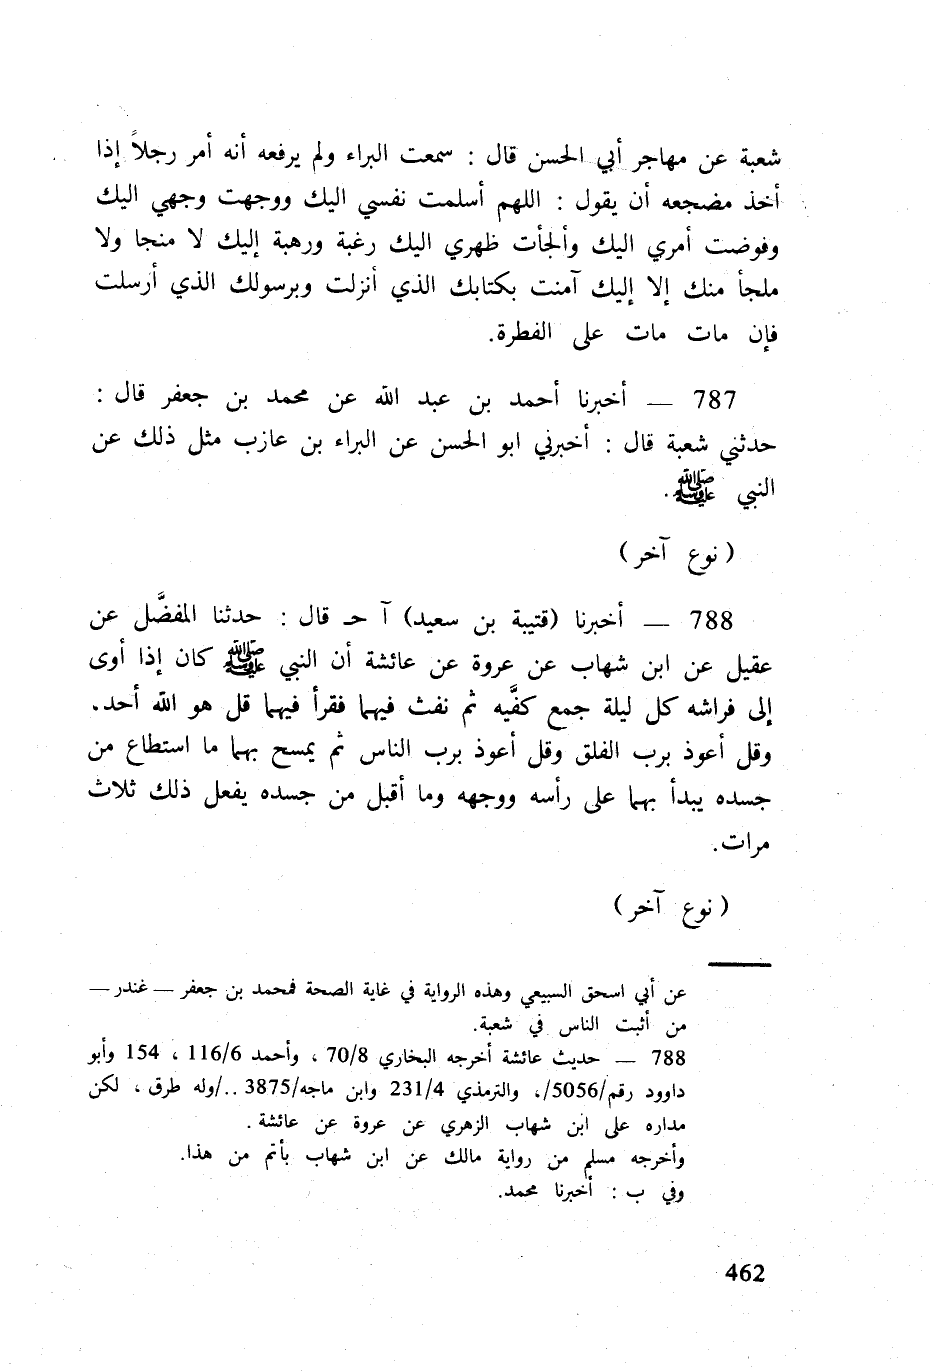 شعبة عن مهاجر أبي الحسن قال : سمعت البراء ولم يرفعه أنه أمر رجلاً إذا
أخذ مضجعه أن يقول : اللهم أسلمت نفسي اليك ووجهت وجهي اليك
وفوضت أمري اليك وألجأت ظهري اليك رغبة ورهبة إليك لا منجا ولا
ملجأ منك إلا إليك آمنت بكتابك الذي أنزلت وبرسولك الذي أرسلت
فإن مات مات على الفطرة.
787 — أخبرنا أحمد بن عبد الله عن محمد بن جعفر قال :
حدثني شعبة قال : أخبرني ابو الحسن عن البراء بن عازب مثل ذلك عن
النبي ﷺ.
(نوع آخر)
788 — أخبرنا (قتيبة بن سعيد) آ حـ قال : حدثنا المفضَّل عن
عقيل عن ابن شهاب عن عروة عن عائشة أن النبي ﷺ كان إذا أوى
إلى فراشه كل ليلة جمع كفَّيه ثم نفث فيهما فقرأ فيهما قل هو الله أحد.
وقل أعوذ برب الفلق وقل أعوذ برب الناس ثم يمسح بهما ما استطاع من
جسده يبدأ بهما على رأسه ووجهه وما أقبل من جسده يفعل ذلك ثلاث
مرات.
(نوع آخر)
عن أبي اسحق السبيعي وهذه الرواية في غاية الصحة فمحمد بن جعفر — غندر —
من أثبت الناس في شعبة.
788 — حديث عائشة أخرجه البخاري 70/8 ، وأحمد 116/6 ، 154 وأبو
داوود رقم/5056/، والترمذي 231/4 وابن ماجه/3875 ../وله طرق ، لكن
مداره على ابن شهاب الزهري عن عروة عن عائشة .
وأخرجه مسلم من رواية مالك عن ابن شهاب بأتم من هذا.
وفي ب : أخبرنا محمد.
462